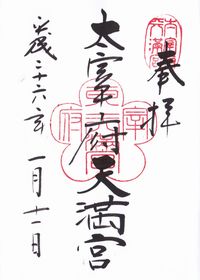 奉拝
太宰府天満宮
平成二十六年 一月十一日